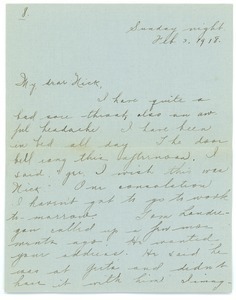 8.
Sunday night
Feb 3, 1918.
My dear Nick,
I have quite a
bad sore throat also an aw
ful headache. I have been
in bed all day. The door
bell rang this afternoon, I
said, I wish this was
Nick." One consolation
I haven't got to go to work
to-morrow. Tom
called up a few mom
ents ago. He wanted
your address. He said he
was at and didn't
have it with him. I may